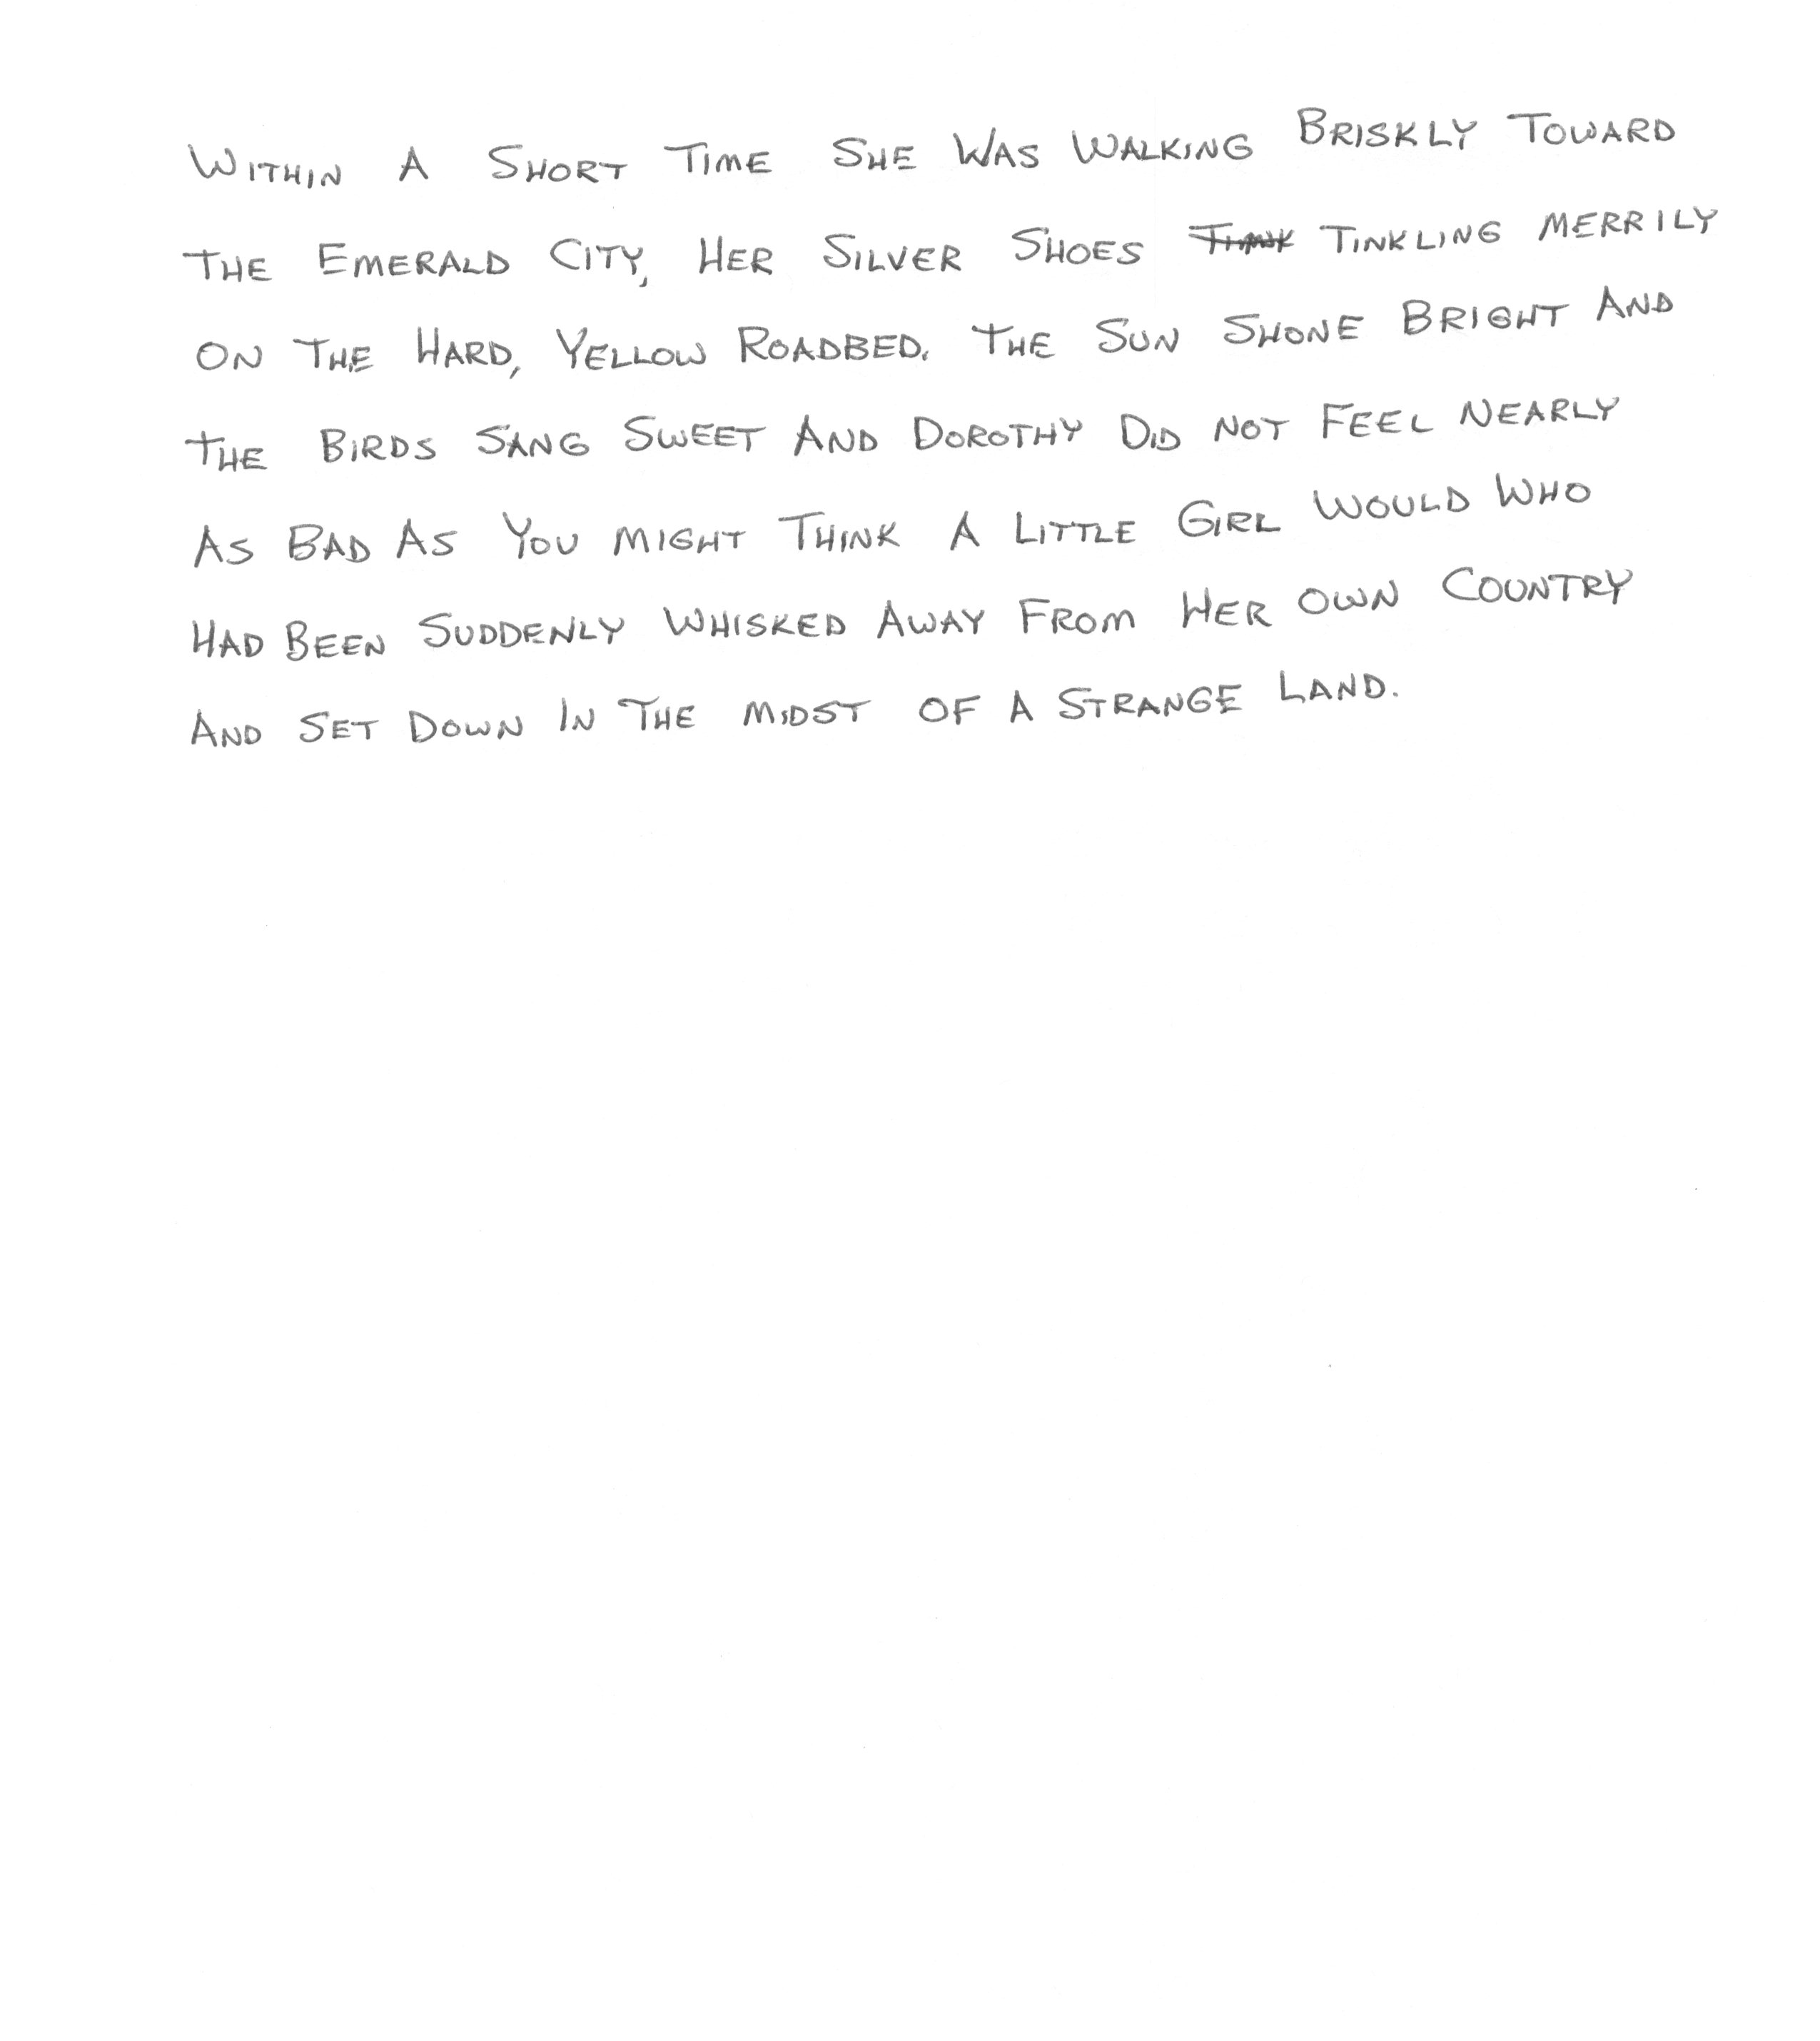 WITHIN A SHORT TIME SHE WAS WALKING BRISKLY TOWARD
THE EMERALD CITY, HER SILVER SHOES TINKLING MERRILY
ON THE HARD, YELLOW ROADBED. THE SUN SHONE BRIGHT AND
THE BIRDS SANG SWEET AND DOROTHY DID NOT FEEL NEARLY
AS BAD AS YOU MIGHT THINK A LITTLE GIRL WOULD WHO
HAD BEEN SUDDENLY WHISKED AWAY FROM HER OWN COUNTRY
AND SET DOWN IN THE MIDST OF A STRANGE LAND.